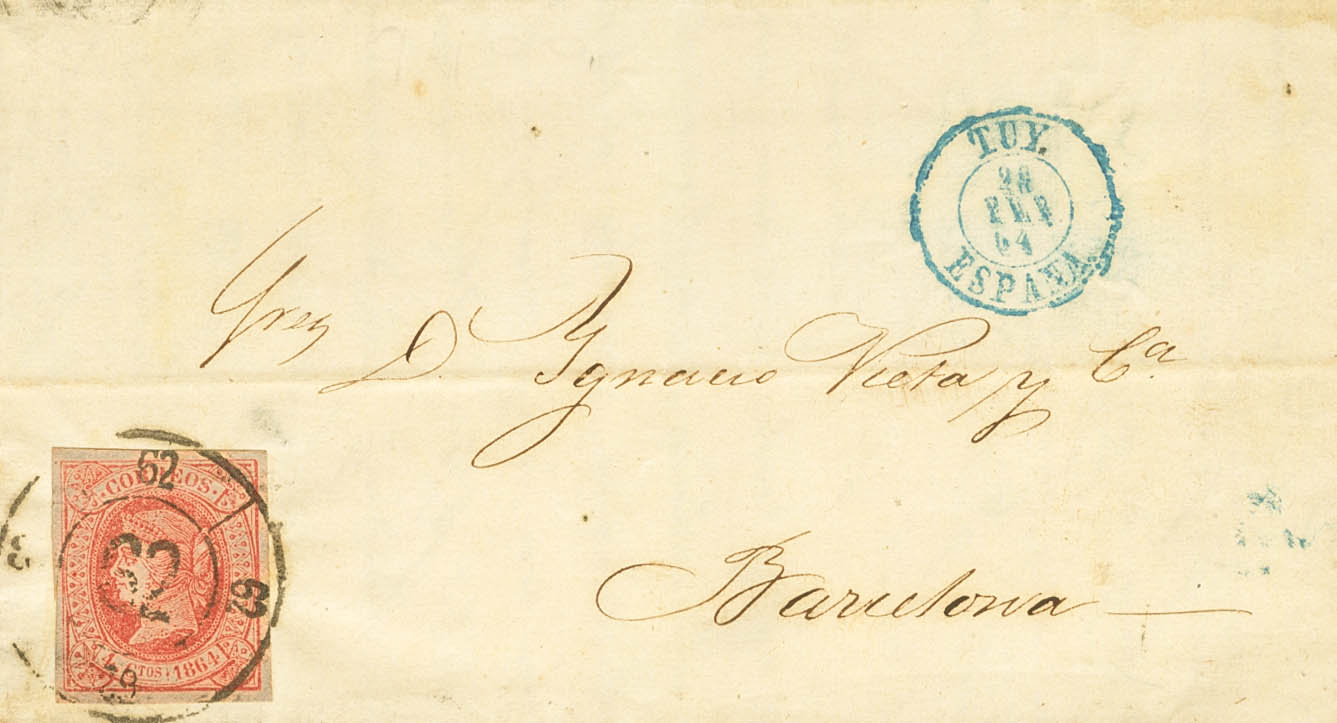 TUY.
28
FEB
64
ESPAÑA
Sres
D. Ygnacio Vieta y Cª
Barcelona
CORREOS.
62
62
62
4 CTOS. 1864